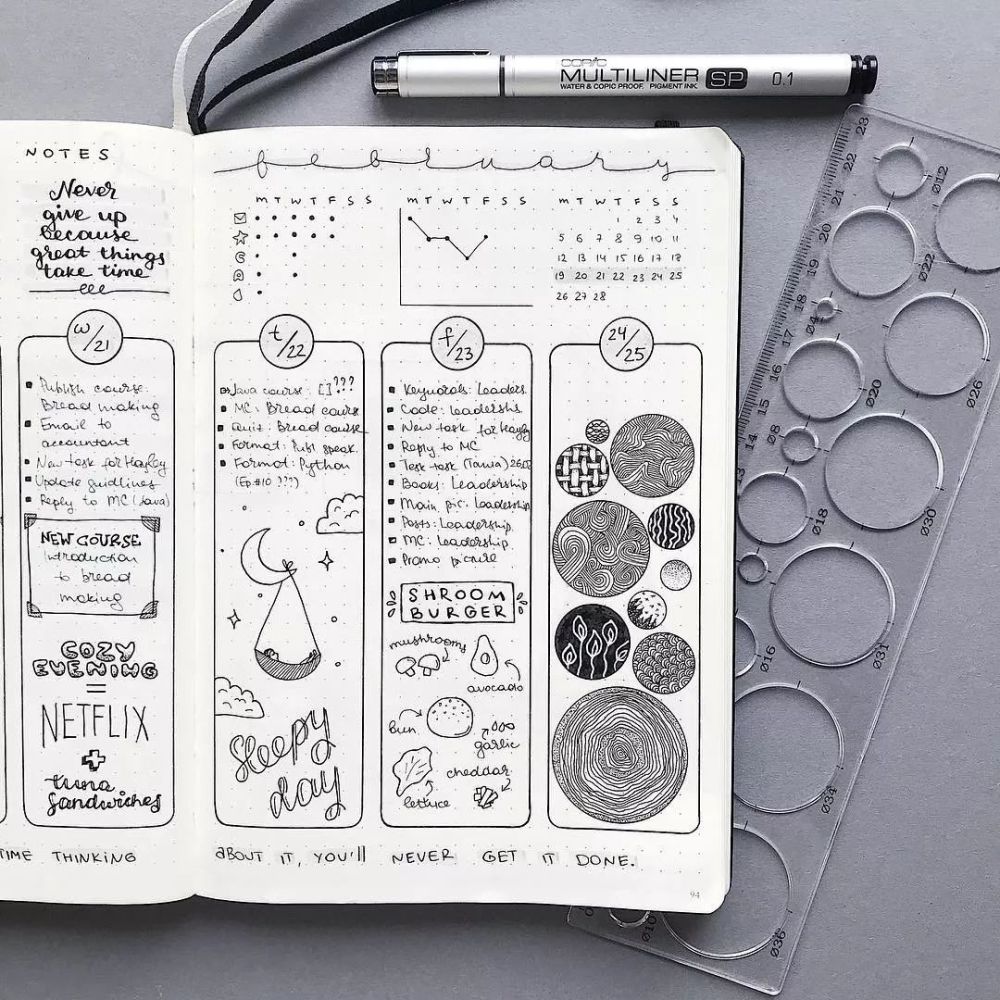 COPIC
MULTILINER SP 0.1
WATER & COPIC PROOF. PIGMENT INK.
NOTES
Never
give up
because
great things
take time
february
M T W T F S S
M T W T F S S
M T W T F S S
1 2 3 4
5 6 7 8 9 10 11
12 13 14 15 16 17 18
19 20 21 22 23 24 25
26 27 28
w/21
Publish course:
Bread making
Email to
accountant
New task for Hayley
Update guidlines
Reply to MC (Java)
NEW COURSE
Introduction
to bread
making
COZY
EVENING
=
NETFLIX
+
tuna
sandwiches
t/22
Java course: [] ???
MC: Bread course
Quiz: Bread course
Format: Publ speak.
Format: Python
(Ep.#10 ???)
Sleepy
day
f/23
Keywords: Leaders.
Code: Leadershs
New task for Hayley
Reply to MC
Task task (Tania)
Books: Leadership
Main pic: Leadership
Posts: Leadership.
MC: Leadership
Promo picture
SHROOM
BURGER
mushrooms
avocado
bun
garlic
cheddar
lettuce
24/25
TIME THINKING ABOUT IT, YOU'll NEVER GET IT DONE.
94
23
22
21
20
19
18
17
16
15
14
13
Ø12
Ø22
Ø4
Ø26
Ø20
Ø8
Ø30
Ø18
Ø31
Ø16
Ø34
Ø10
Ø36